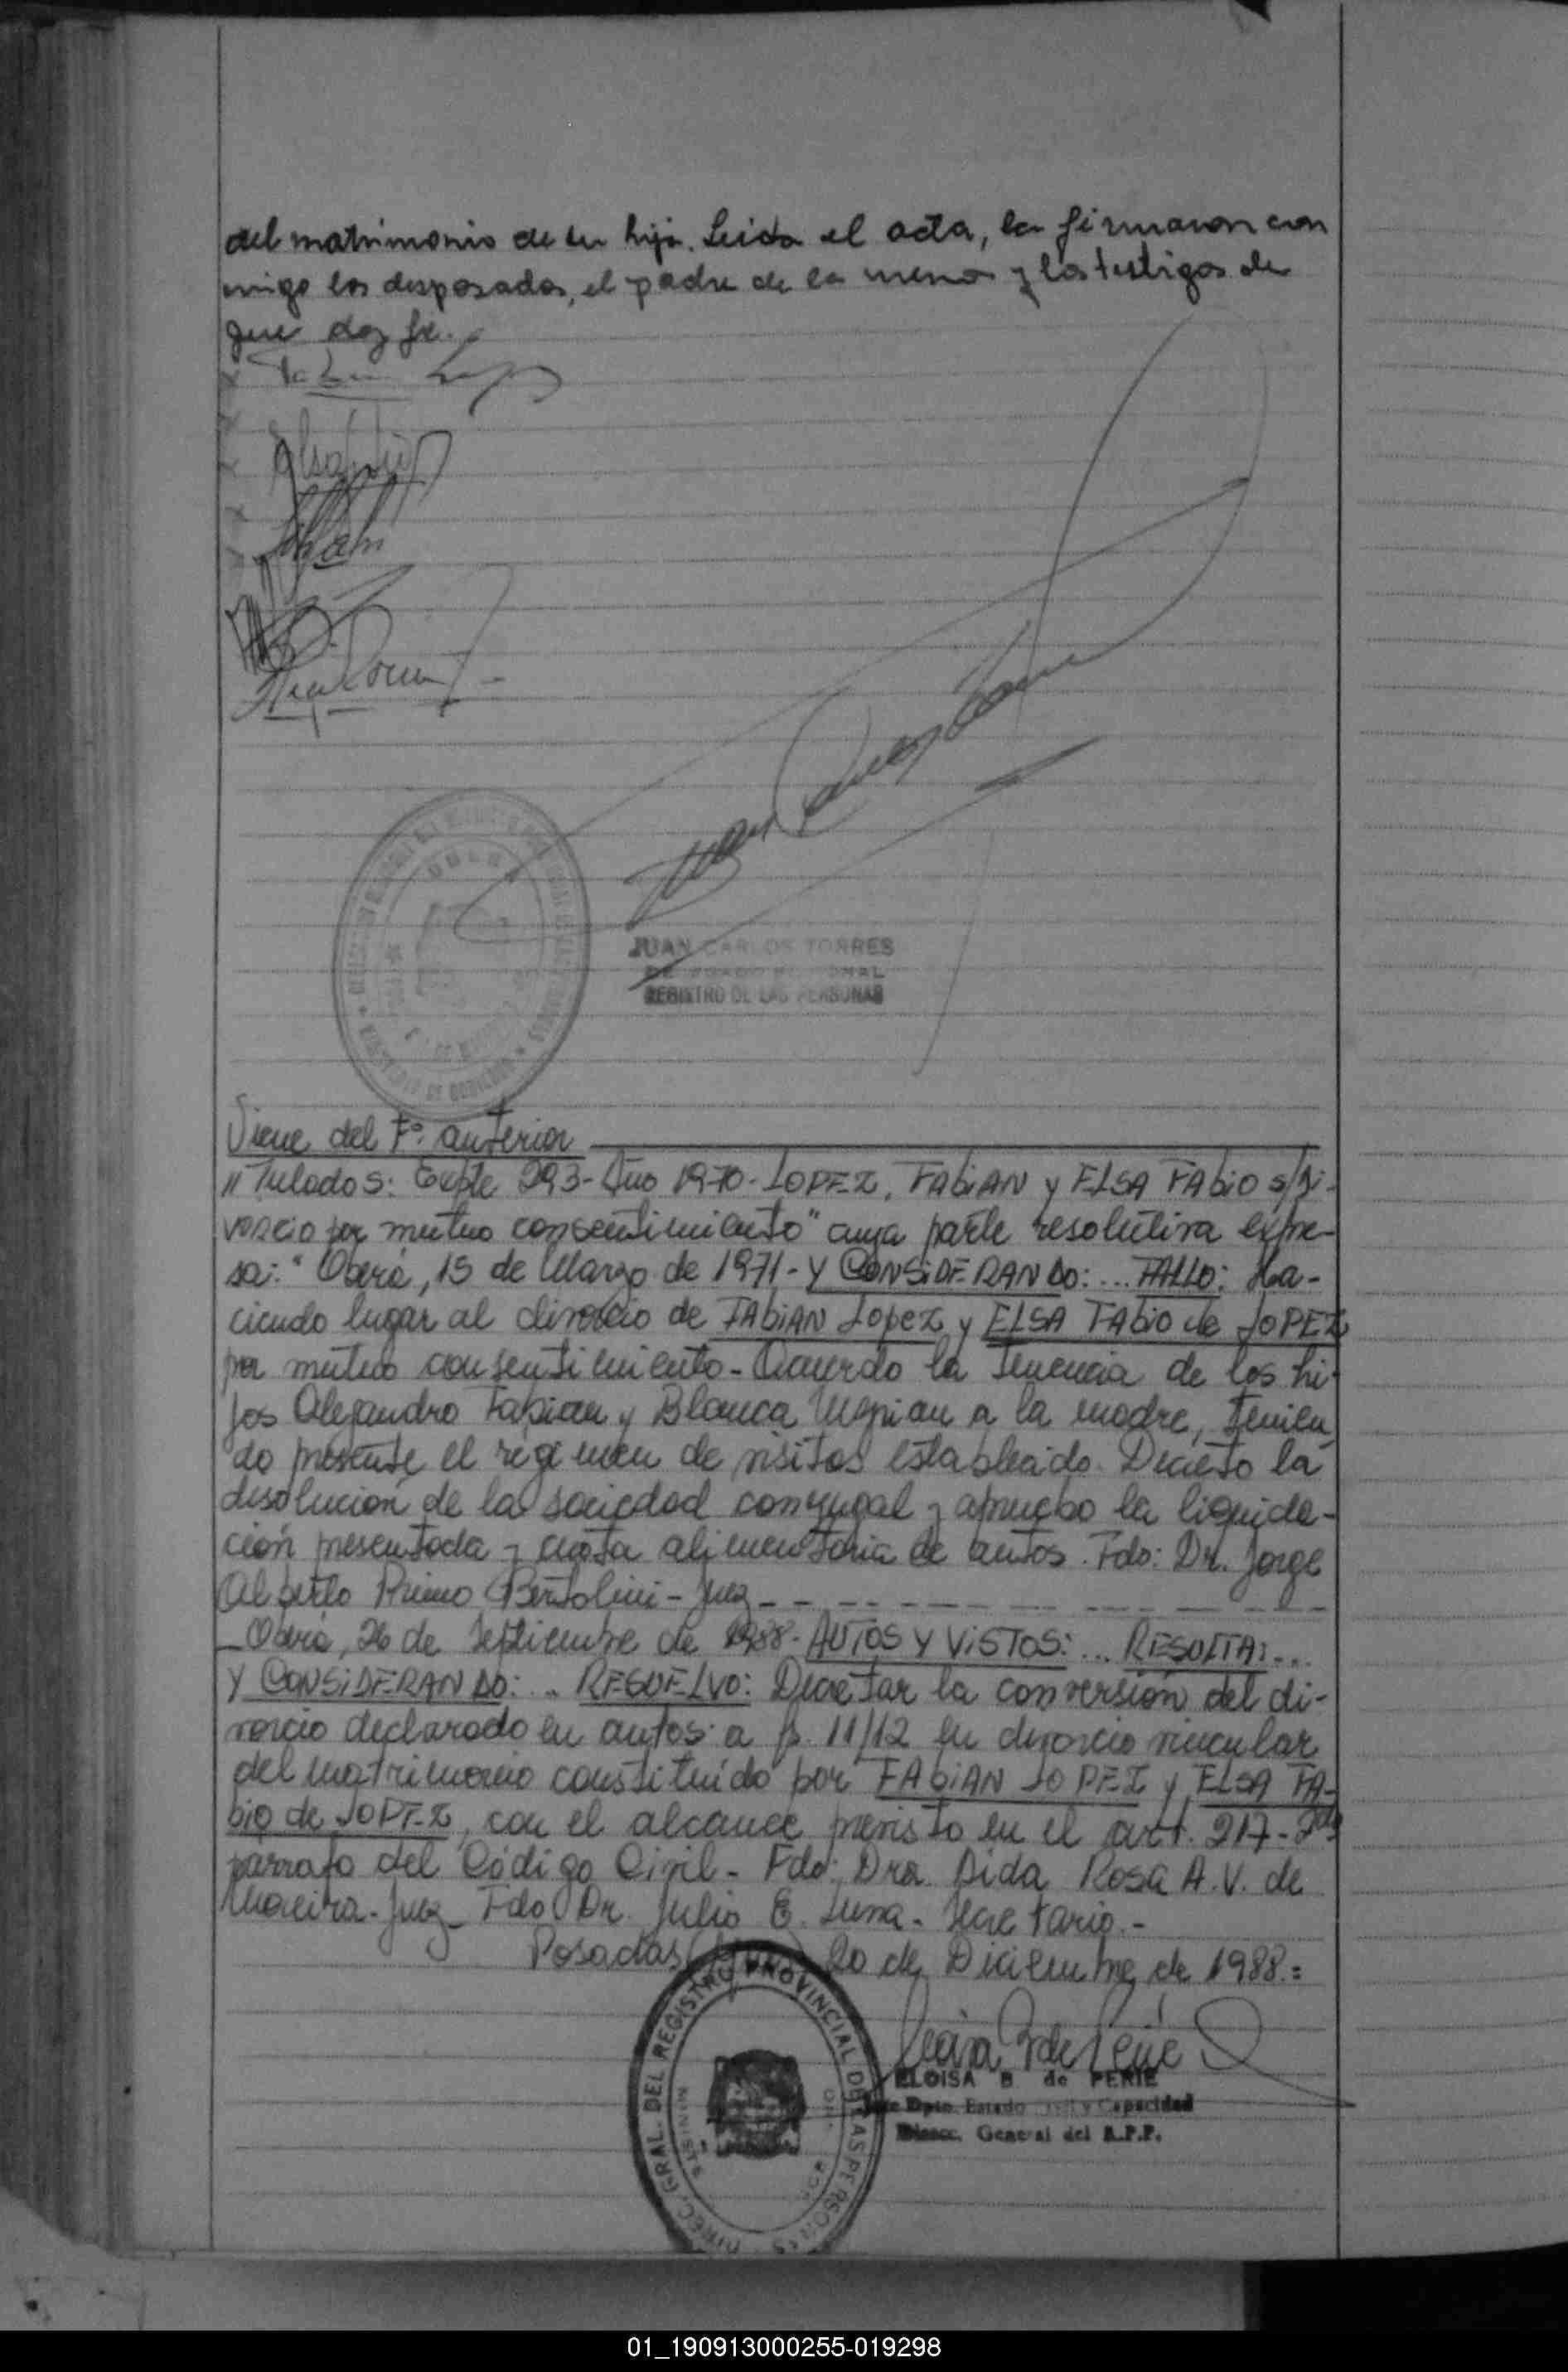 del matrimonio de su hija. Leida el acta, la firmaron con
migo los desposados, el padre de la menor y los testigos de
que doy fe.
JUAN CARLOS TORRES
REGISTRO DE LAS PERSONAS
Viene del Fº anterior
"Tulados: Expte 293- Año 1970- LOPEZ, FABIAN y ELSA FABIO s/Di-
vorcio por mutuo consentimiento" cuya parte resolutiva expre-
sa: "Oberá, 15 de Marzo de 1971- Y CONSIDERANDO: ... FALLO: Ha-
ciendo lugar al divorcio de FABIAN LOPEZ y ELSA FABIO de LOPEZ
por mutuo consentimiento- Acuerdo la tenencia de los hi-
jos Alejandro Fabian y Blanca a la madre, tenien
do presente el regimen de visitas establecido. Decreto la
disolución de la sociedad conyugal y apruebo la liquida-
ción presentada y cuota alimentaria de autos. Fdo: Dr. Jorge
Alberto Primo Bertolini- Juez
Oberá, 26 de Septiembre de 1988- AUTOS Y VISTOS: ... RESULTA: ...
Y CONSIDERANDO: ... RESUELVO: Decretar la conversión del di-
vorcio declarado en autos a fs. 11/12 en divorcio vincular
del matrimonio constituído por FABIAN LOPEZ y ELSA FA-
BIO de LOPEZ, con el alcance previsto en el art. 217- 2do
parrafo del Código Civil- Fdo: Dra. Aida Rosa A. V. de
Moreira- Juez- Fdo Dr. Julio E. Luna- Secretario.-
Posadas 20 de Diciembre de 1988.=
DIREC. GRAL. DEL REGISTRO PROVINCIAL DE LAS PERSONAS
ELOISA B de PERIE
Jefe Dpto. Estado Civil y Capacidad
Direcc. General del R.P.P.
01_190913000255-019298